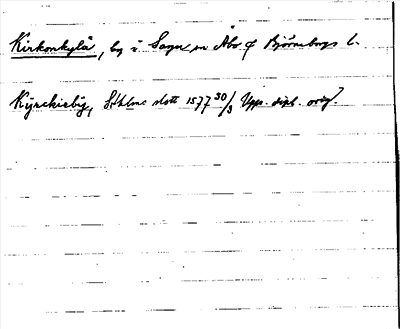 Kirkonkylä, by i Sagu sn Åbo o Björneborgs l.
Kÿrckiebÿ, Sthlms slott 1577 30/3 Upps. dipl. orig.